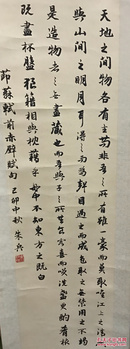 天地之間物各有主苟非吾之所有雖一毫而莫取惟江上之清風
與山間之明月耳得之而為聲目遇之而成色取之無禁用之不竭
是造物者之無盡藏也而吾與子之所共客喜而笑洗盞更酌肴核
既盡杯盤狼籍相與枕藉乎舟中不知東方之既白
節蘇軾前赤壁賦句 己卯中秋 朱